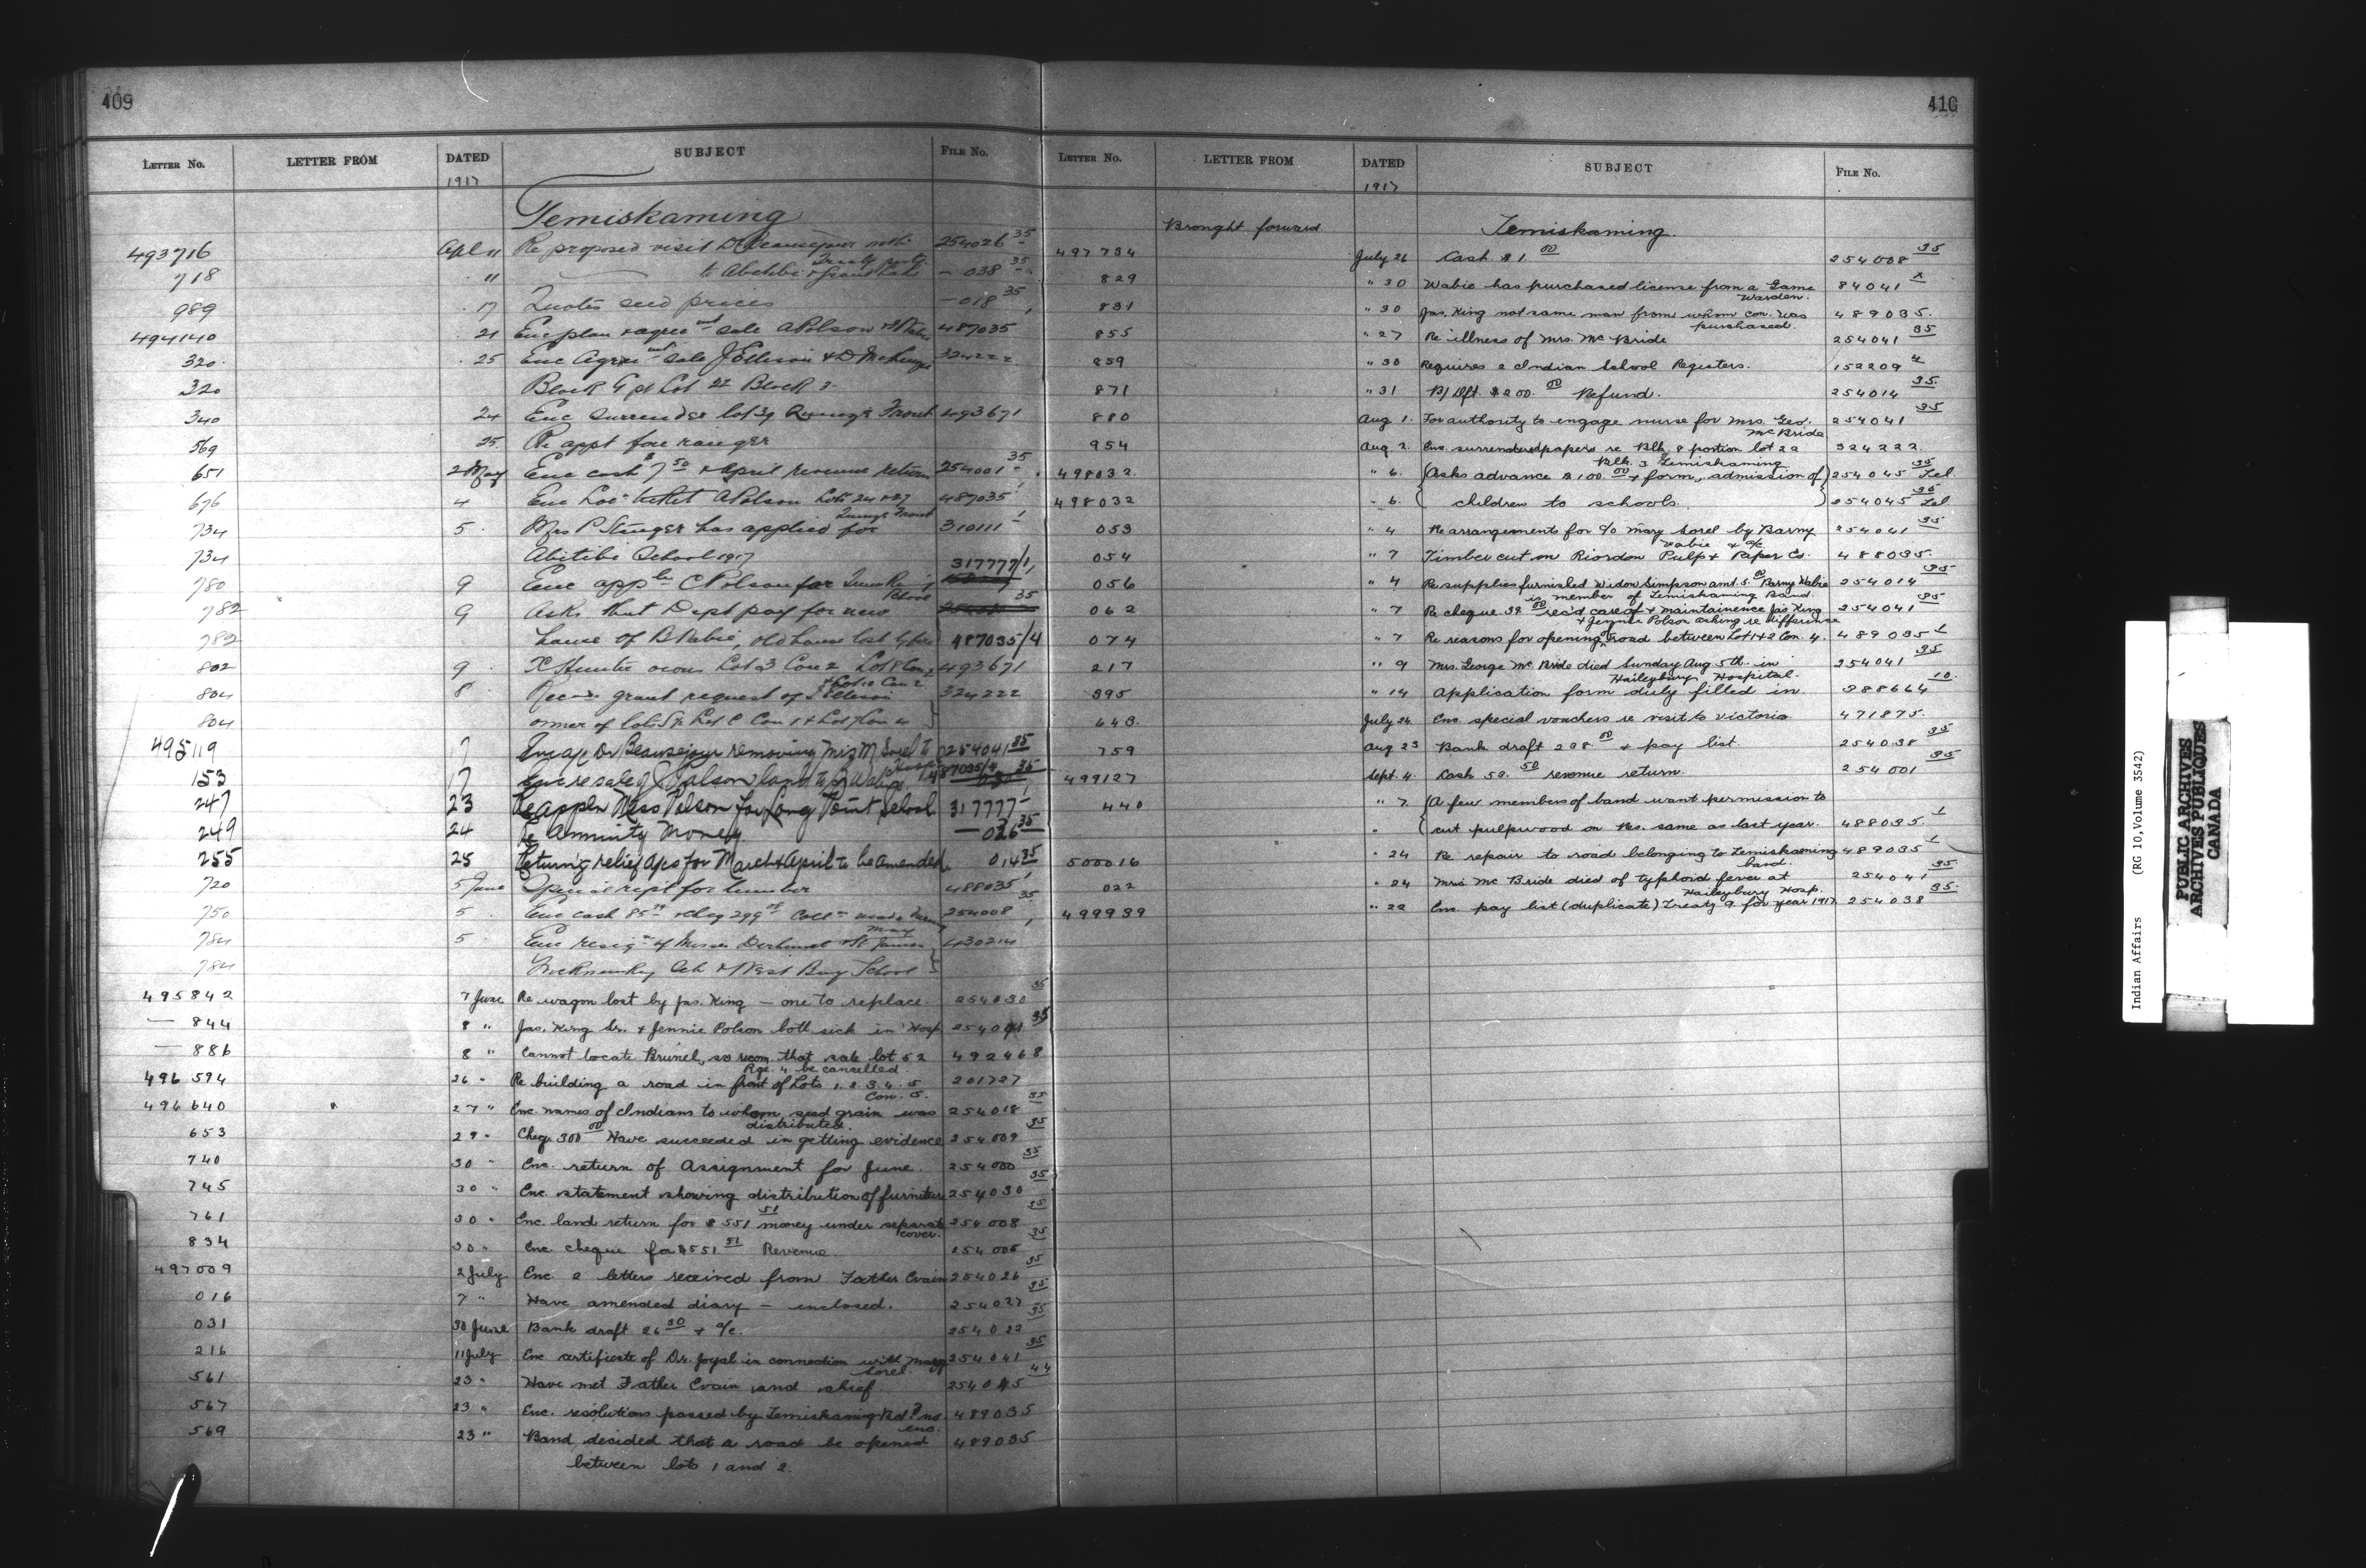 409
LETTER No. LETTER FROM DATED SUBJECT FILE No.
1917
Temiskaming
493716 Apl 11 Re proposed visit Dr Beausejour with 254026 35
Treaty party
718 " to Abitibi & Grand Lake — 038 35
989 17 Quotes seed prices — 018 35
494140 21 Enc plan & agree mt sale A Polson 487035
320 25 Enc Agree mt sale J Ellison & D McKenzie 324222
320 Block 9 pt Lot 22 Block 3
340 24 Enc surrender lot 39 Quinze Front 493671
569 25 Re appt fire ranger
651 2 May Enc cash $7 50 & April revenue return 254001 35
676 4 Enc Loc ticket A Polson Lots 24 & 27 487035
Quinze Front
734 5 Mrs P Stenger has applied for 310111 1
734 Abitibi School 1917
317777/1
780 9 Enc appln C Polson for
782 9 Asks that Dept pay for new 35
782 house of B Wabie, old house lost by fire 487035/4
802 9 Hunter owns Lot 3 Con 2 Lot 8 Con 2 493671
& Lot 10 Con 2
804 8 Recds grant request of J Ellison 324222
804 owner of lot
495119 7 Enc a/c Dr Beausejour removing Mrs M Sorel to 254041 35
Hosp
153 17 Enc re sale of J Polson land to B Wabie 487035/4
247 23 Re appln Miss Polson for Long Point School 317777
249 24 Re Annuity Money — 026 35
255 25 Return'g relief a/cs for March & April to be amended 014 35
720 5 June Special rept for lumber 488035
750 5 Enc cash 85 & cheq 299 Collns made during 254008 35
May
784 5 Enc resig n of Misses & St James 430214
784 Sch & West Bay School
495842 7 June Re wagon lost by Jas. King — one to replace 254030 35
— 844 8 " Jas. King Sr. & Jennie Polson both sick in Hosp 254041 35
— 886 8 " Cannot locate Brunel, so recom. that sale lot 52 492468
Rge. 4 be cancelled
496 594 26 " Re building a road in front of Lots 1. 2. 3. 4. 5 201727
Con. 5.
496640 27 " Enc names of Indians to whom seed grain was 254018 35
distributed.
653 29 " Cheq. 300 00 Have succeeded in getting evidence 254009 35
740 30 " Enc. return of Assignment for June. 254000 35
745 30 " Enc. statement showing distribution of furniture 254030 35
761 30 " Enc. land return for $551 51 money under separate 254008 35
cover.
834 30 " Enc. cheque for $551 51 Revenue. 254005 35
497009 2 July Enc. 2 letters received from Father Evain 254026 35
016 7 " Have amended diary — enclosed. 254027 35
031 30 June Bank draft 26 30 & a/c. 254022 35
216 11 July Enc certificate of Dr. Joyal in connection with Mary 254041 35
Sorel
561 23 " Have met Father Evain and chief 254045 44
567 23 " Enc. resolutions passed by Temiskaming Bd? no 489035
enc.
569 23 " Band decided that a road be opened 489035
between lots 1 and 2.
410
LETTER No. LETTER FROM DATED SUBJECT FILE No.
1917
Brought forward Temiskaming.
497734 July 26 Cash $1. 00 254008 35
829 " 30 Wabie has purchased license from a Game 84041 x
Warden.
831 " 30 Jas. King not same man from whom con. was 489035.
purchased.
855 " 27 Re illness of Mrs. McBride 254041 35
859 " 30 Requires 2 Indian School Registers. 152209 4
871 " 31 B/Dft. $200. 00 Refund. 254014 35
880 Aug 1. For authority to engage nurse for Mrs. Geo. 254041 35
McBride
954 Aug 2. Enc. surrendered papers re Blk. 8 portion lot 22 324222
Blk. 3 Temiskaming
498032. " 6. (Asks advance $100. 00 & form, admission of) 254045 35 Tel.
498032 " 6. ( children to schools. ) 254045 35 Tel
053 " 4 Re arrangements for c/o Mary Sorel by Barny 254041 35
Wabie & a/c.
054 " 7 Timber cut on Riordon Pulp & Paper Co. 488035.
056 " 4 Re supplies furnished Widow Simpson amt. 5. 00 Barny Wabie 254014 35
is member of Temiskaming Band.
062 " 7 Re cheque 39. 00 rec'd care of & maintainence Jas King 254041 35
& Jennie Polson asking re difference
074 " 7 Re reasons for opening road between Lot 1 & 2 Con. 4. 489035 1
217 " 9 Mrs. George McBride died Sunday Aug. 5th. in 254041 35
Haileybury Hospital.
395 " 14 Application form duly filled in. 388664 10.
643. July 24. Enc. special vouchers re visit to Victoria 471875.
759 Aug 23 Bank draft 298. 00 & pay list. 254038 35
499127 Sept. 4. Cash 52. 50 revenue return. 254001 35
440 " 7. (A few members of band want permission to
" (cut pulpwood on Res. same as last year. 488035. 1
500016 " 24 Re repair to road belonging to Temiskaming 489035 1
band.
022 " 24 Mrs McBride died of typhoid fever at 254041 35
Haileybury Hosp.
499939 " 22 Enc. pay list (duplicate) Treaty 9 for year 1917. 254038 35.
Indian Affairs (RG 10, Volume 3542)
PUBLIC ARCHIVES
ARCHIVES PUBLIQUES
CANADA